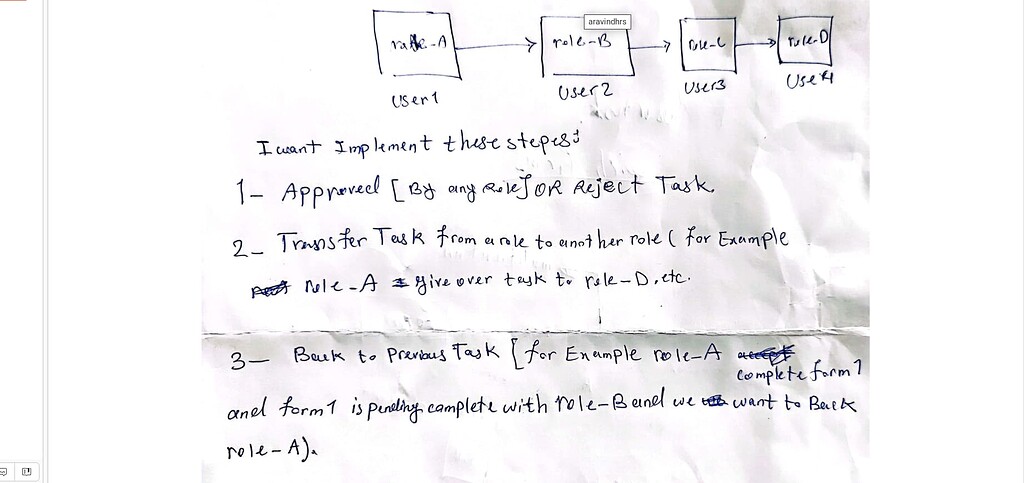 aravindhrs
role-A
role-B
role-C
role-D
User1
User2
User3
User4
I want Implement these stepes:
1- Approved [By any Role] OR Reject Task.
2- Transfer Task from a role to another role ( for Example
role-A give over task to role-D, etc.
3- Back to Previous Task [for Example role-A
complete form1
and form1 is pending complete with role-B and we want to Back
role-A).